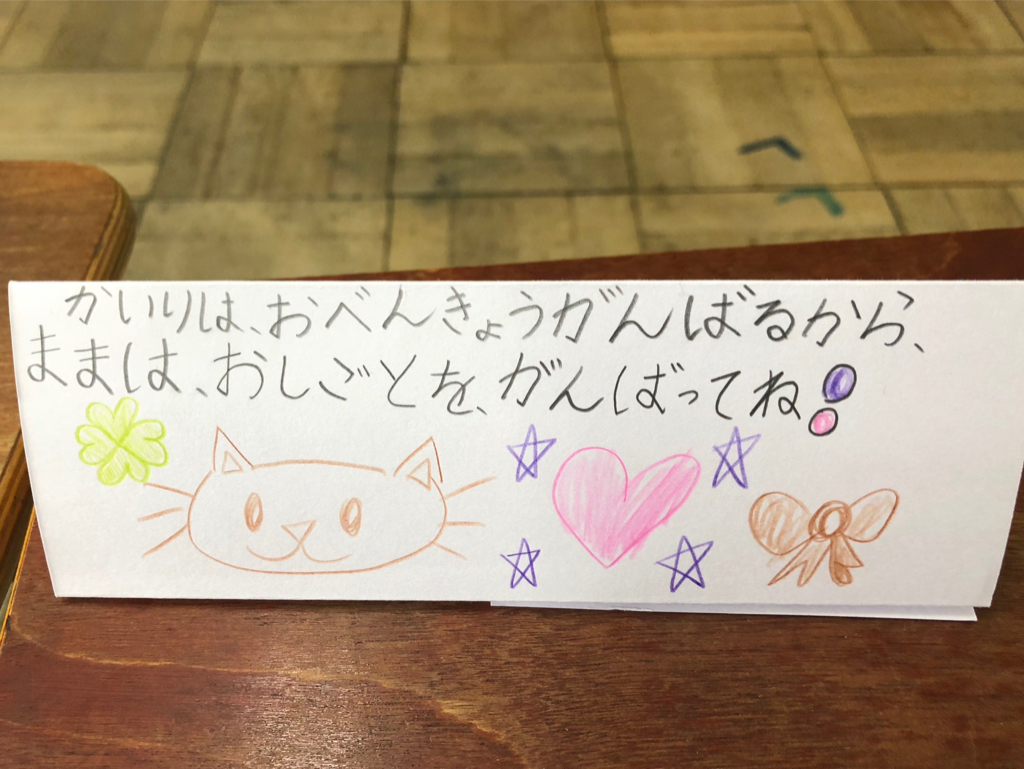 かいりは、おべんきょうがんばるから、
ままは、おしごとを、がんばってね!!